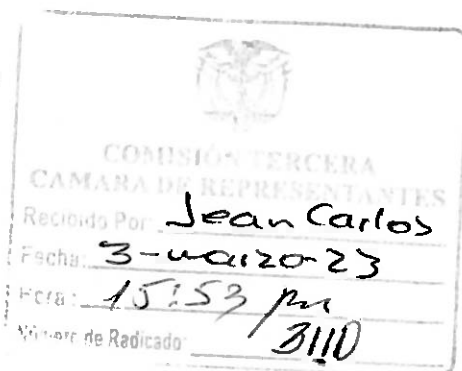 COMISIÓN TERCERA
CAMARA DE REPRESENTANTES
Recibido Por: Jean Carlos
Fecha: 3-marzo-23
Hora: 15:53 pm
Número de Radicado: